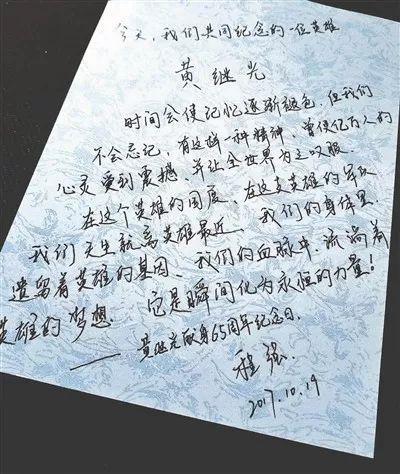 今天，我们共同纪念的一位英雄
黄继光
时间会使记忆逐渐褪色，但我们
不会忘记，有这样一种精神，曾使亿万人的
心灵受到震撼，并让全世界为之叹服。
在这个英雄的国度、在这支英雄的军队
我们天生就离英雄最近、我们的身体里
遗留着英雄的基因、我们的血脉中，流淌着
英雄的梦想。它是瞬间化为永恒的力量！
——黄继光献身65周年纪念日。
程强
2017.10.19